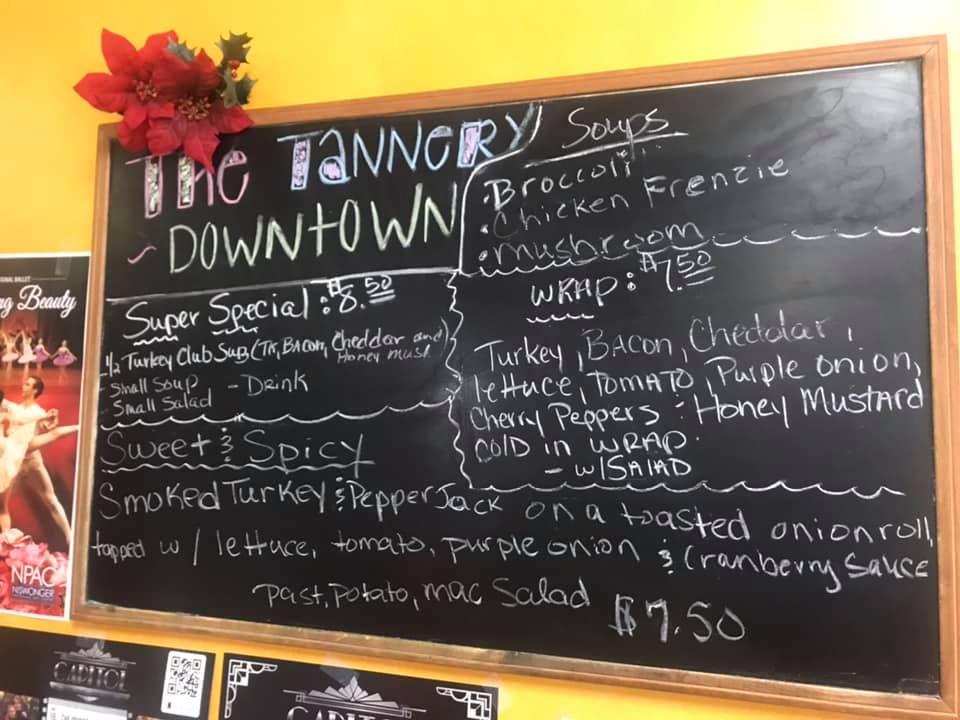 THE TANNERY
~ DOWNTOWN
Soups
·Broccoli
·Chicken Frenzie
·mushroom
Super Special : $8.50
1/2 Turkey Club Sub (TK, BACON, Cheddar and
Honey must.
- Small Soup
- Small Salad
- Drink
WRAP : $7.50
Turkey, BACON, Cheddar,
lettuce, TOMATO, Purple onion,
Cherry Peppers & Honey Mustard
COLD in WRAP.
- w/SALAD
Sweet & Spicy
Smoked Turkey & Pepper Jack on a toasted onion roll,
topped w/ lettuce, tomato, purple onion & Cranberry Sauce
past, potato, mac Salad $7.50
ONAL BALLET
ng Beauty
NPAC
NISWONGER
CAPITOL
CAPITOL